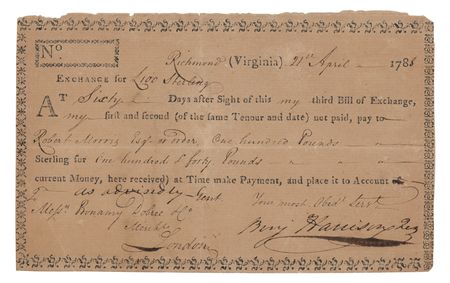 No
Richmond (Virginia) 21st April 1788
EXCHANGE for £100 Sterling
AT Sixty Days after Sight of this my third Bill of Exchange,
my first and second (of the same Tenour and date) not paid, pay to
Robert Morris Esqr. or order, One hundred Pounds
Sterling for One hundred & forty Pounds
current Money, here received) at Time make Payment, and place it to Account of
as advised by Gent
To Your most Obedt Servt
Messrs. Bonamy Dobree & Co. Benj Harrison
London